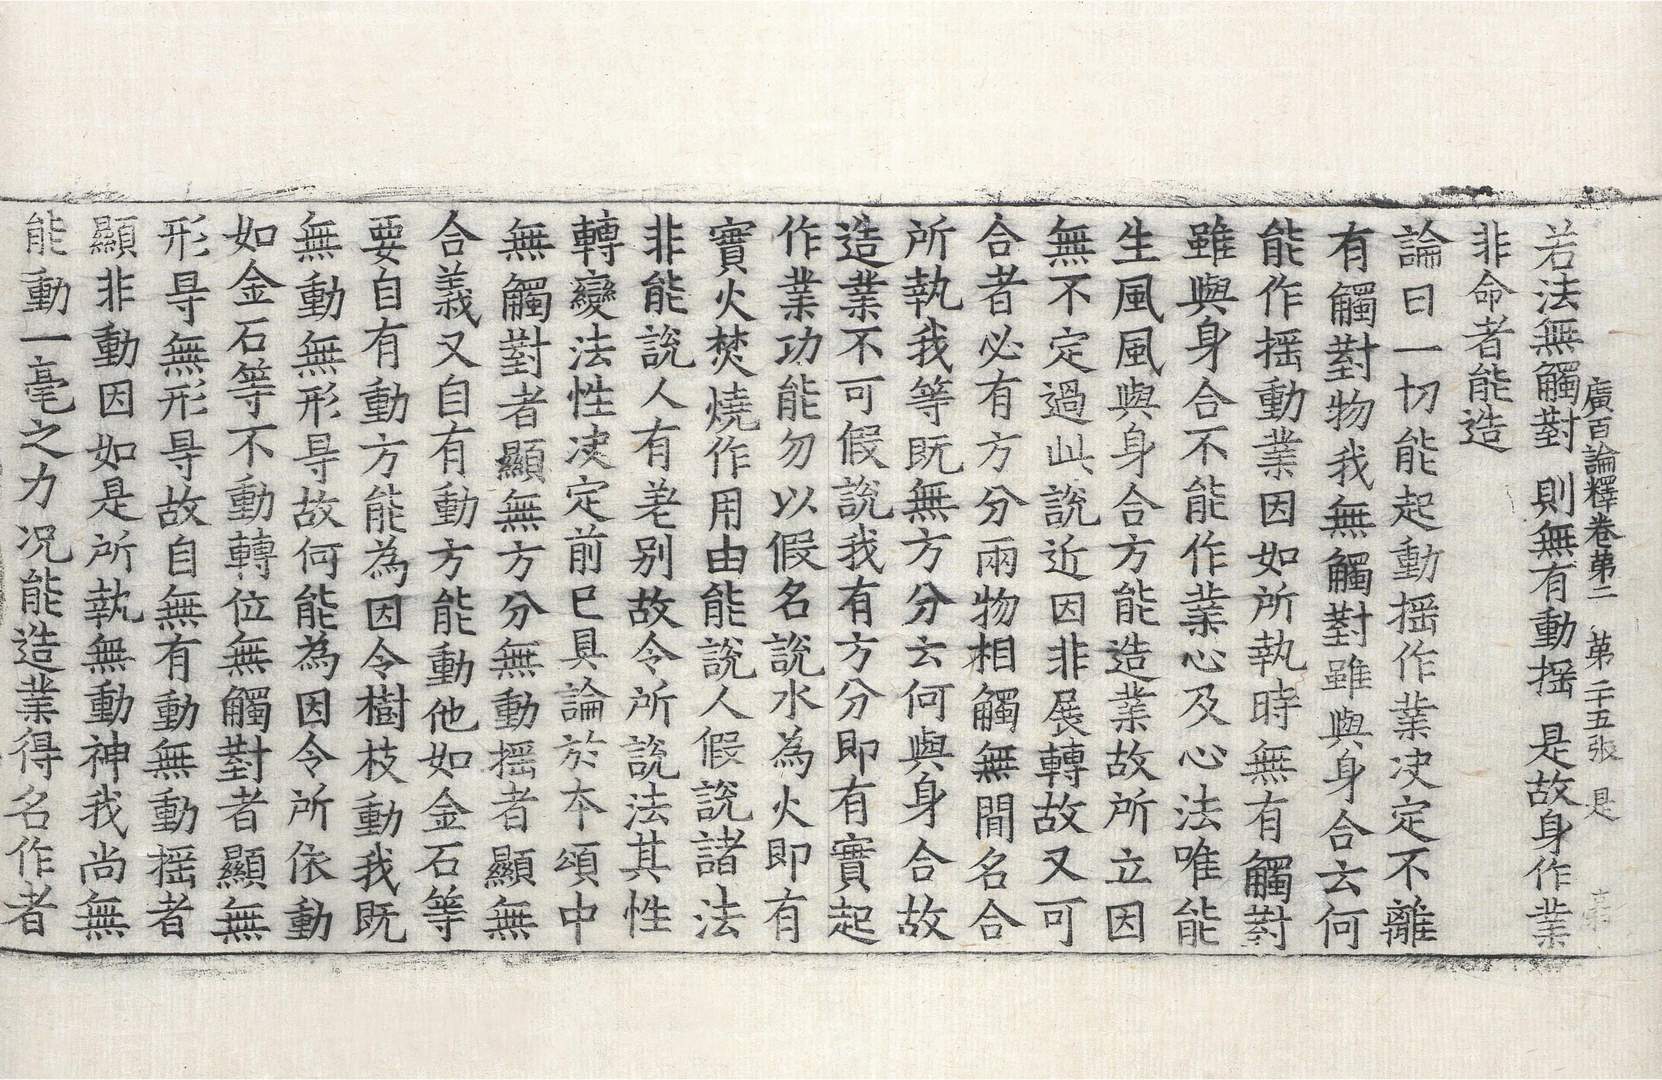 廣百論釋卷苐二　苐二十五張　是
若法無觸對　則無有動揺　是故身作業
非命者能造
論曰一切能起動揺作業决定不離
有觸對物我無觸對雖與身合云何
能作揺動業因如所執時無有觸對
雖與身合不能作業心及心法唯能
生風風與身合方能造業故所立因
無不定過此說近因非展轉故又可
合者必有方分兩物相觸無間名合
所執我等既無方分云何與身合故
造業不可假說我有方分即有實起
作業功能勿以假名說水為火即有
實火焚燒作用由能說人假說諸法
非能說人有差別故令所說法其性
轉變法性决定前已具論於本頌中
無觸對者顯無方分無動揺者顯無
合義又自有動方能動他如金石等
要自有動方能為因令樹枝動我既
無動無形㝵故何能為因令所依動
如金石等不動轉位無觸對者顯無
形㝵無形㝵故自無有動無動揺者
顯非動因如是所執無動神我尚無
能動一毫之力况能造業得名作者